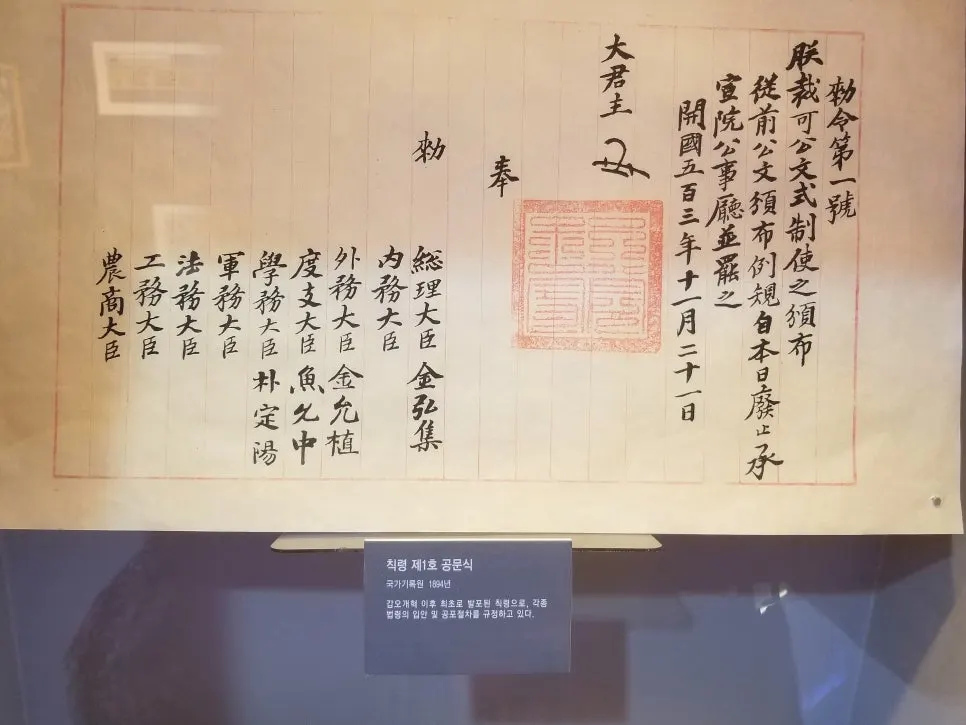 勅令第一號
朕裁可公文式制使之頒布
從前公文頒布例規自本日廢止承
宣院公事廳並罷之
開國五百三年十一月二十一日
大君主
奉
勅
総理大臣 金弘集
内務大臣
外務大臣 金允植
度支大臣 魚允中
學務大臣 朴定陽
軍務大臣
法務大臣
工務大臣
農商大臣
칙령 제1호 공문식
국가기록원 1894년
갑오개혁 이후 최초로 발포된 칙령으로, 각종
법령의 입안 및 공포절차를 규정하고 있다.